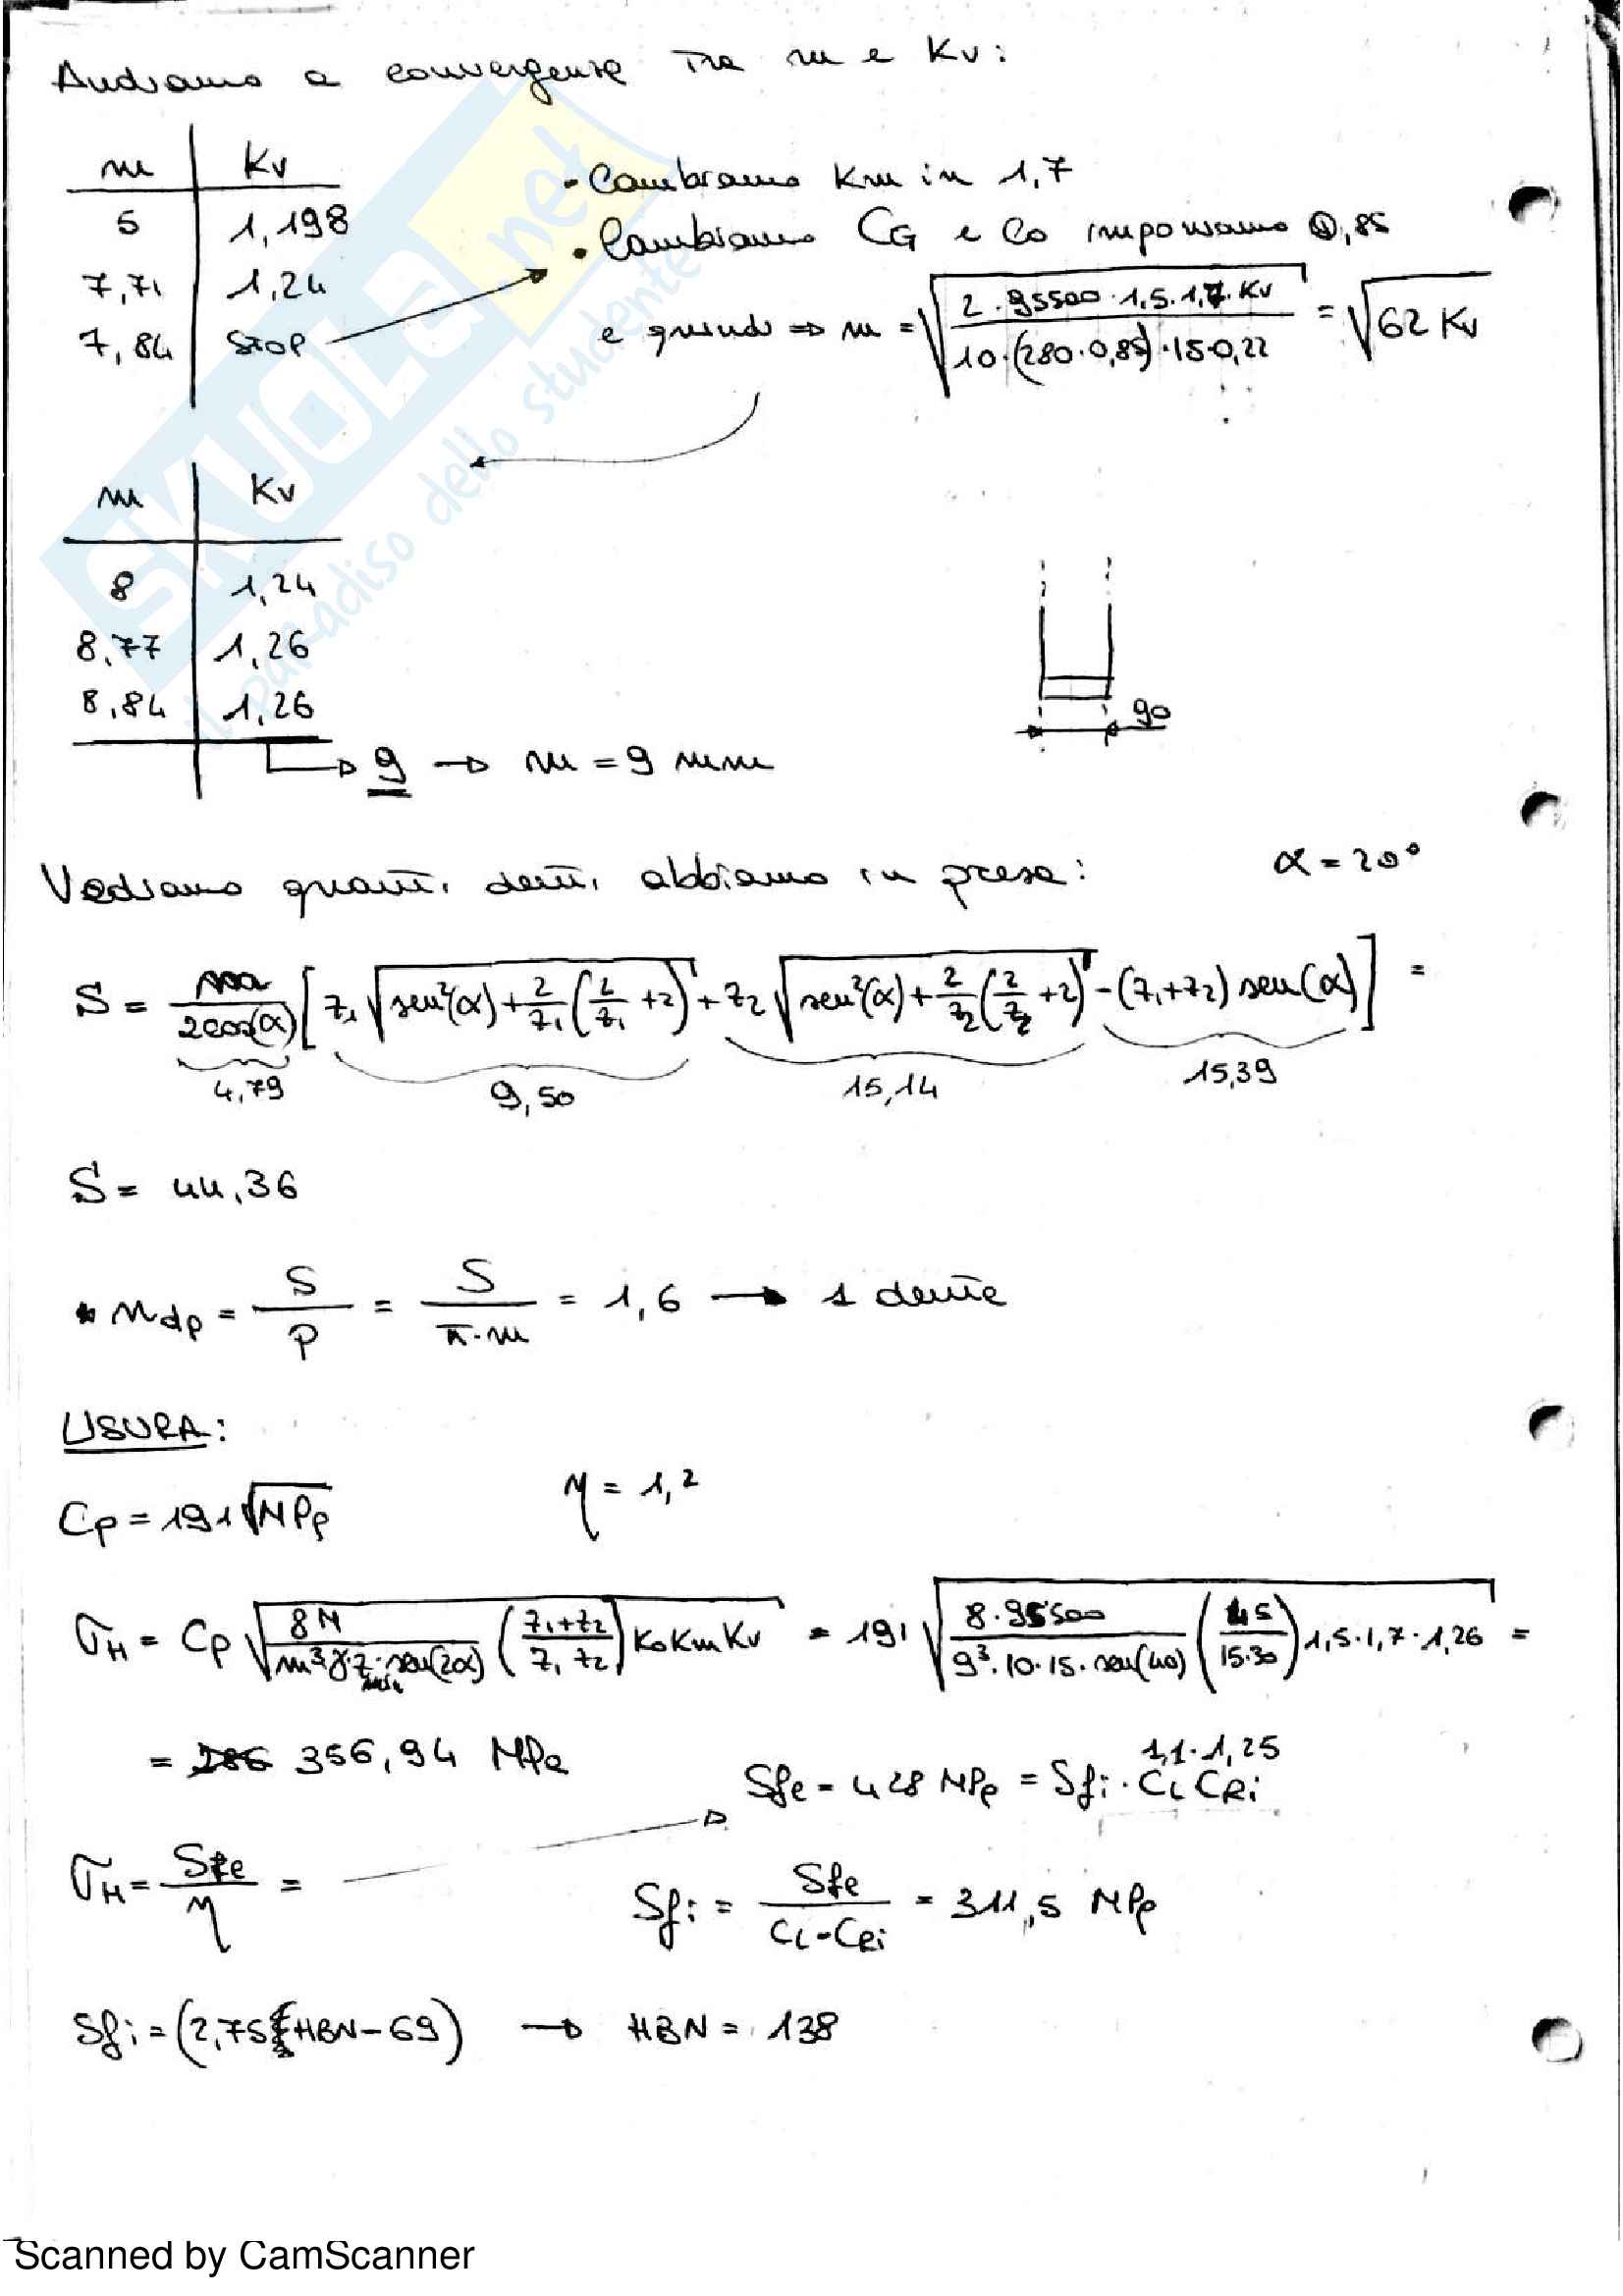 Andiamo a convergenza tra m e Kv:
m | Kv
5 | 1,198
7,71 | 1,24
7,84 | STOP
• Cambiamo Km in 1,7
• Cambiamo CG e lo imponiamo 0,85
e quindi ⇒ m = √(2·95500·1,5·1,7·Kv / 10·(280·0,85)·15·0,22) = √62 Kv
m | Kv
8 | 1,24
8,77 | 1,26
8,84 | 1,26
→ 9 → m = 9 mm
90
Vediamo quanti denti abbiamo in presa: α = 20°
S = m/2cos(α) [z₁ √(sen²(α) + 2/z₁ (2/z₁ + 2)) + z₂ √(sen²(α) + 2/z₂ (2/z₂ + 2)) - (z₁+z₂) sen(α)] =
4,79 9,50 15,14 15,39
S = 44,36
• ndp = S/P = S/π·m = 1,6 → 1 dente
USURA:
Cp = 191 √MPa η = 1,2
σH = Cp √(8M / m³·γ·zmin·sen(2α) (z₁+z₂ / z₁ z₂) Ko Km Kv) = 191 √(8·95500 / 9³·10·15·sen(40) (45 / 15·30) 1,5·1,7·1,26) =
= 356,94 MPa
1,1·1,25
Sfe = 428 MPa = Sfi · CL CRi
σH = Sfe/η =
Sfi = Sfe / CL·CRi = 311,5 MPa
Sfi = (2,75 HBN - 69) → HBN = 138
SKUOLA.net
il paradiso dello studente
Scanned by CamScanner